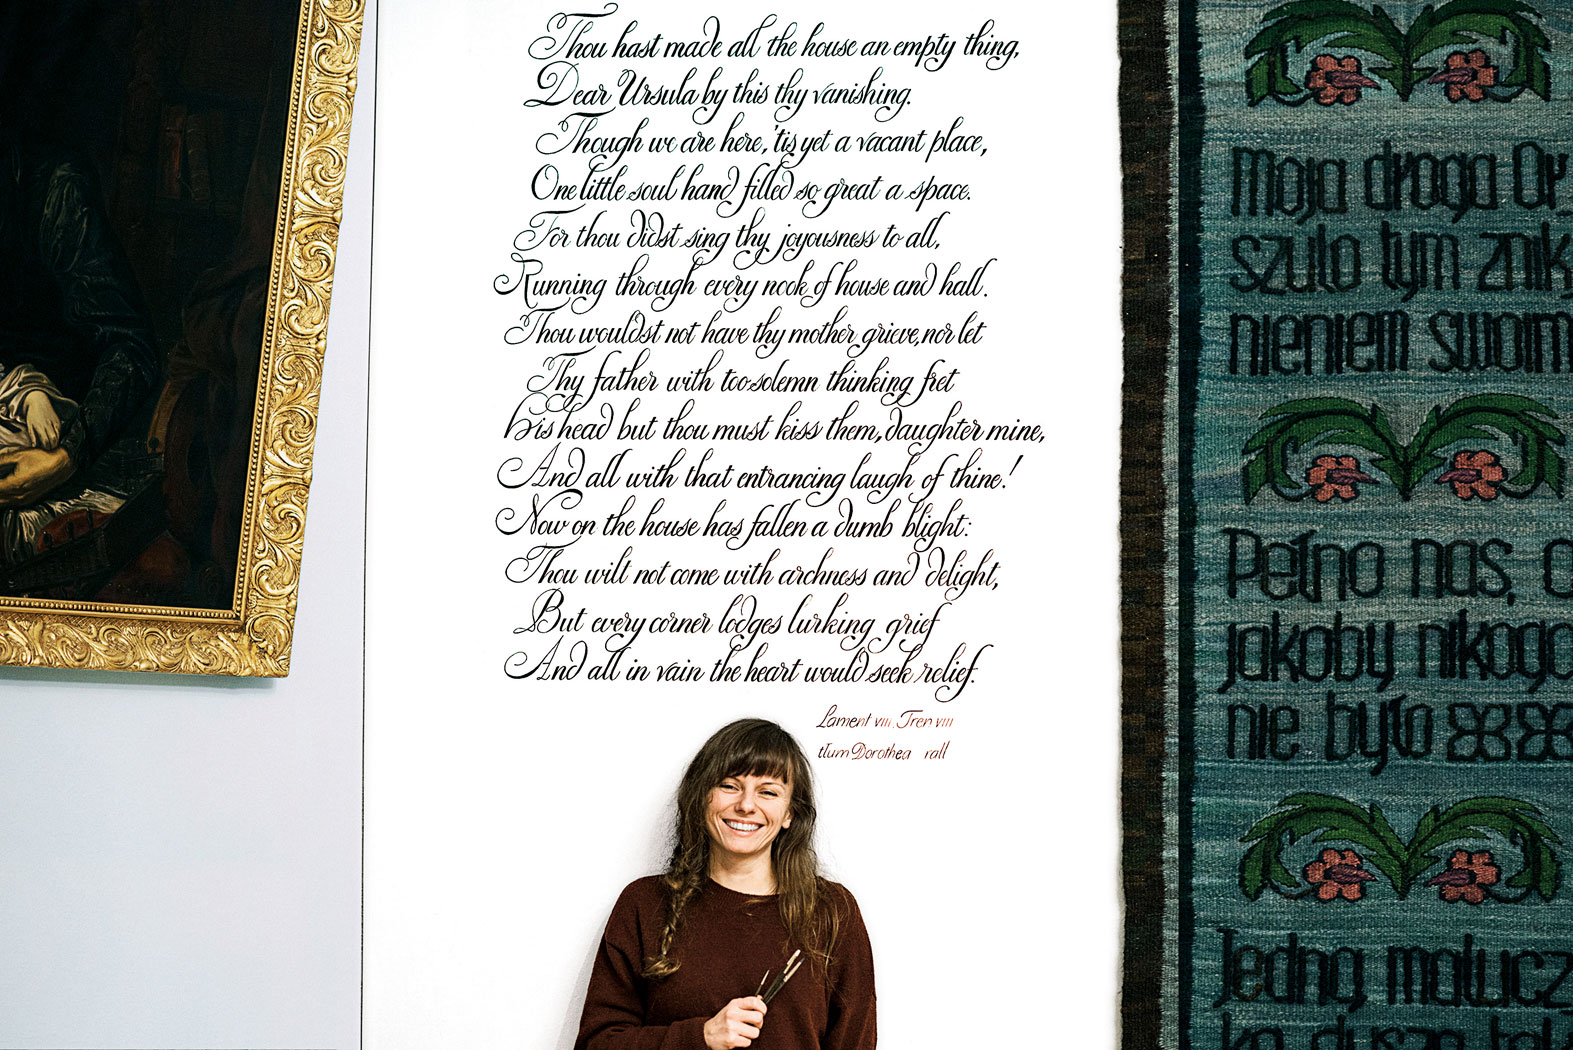 Thou hast made all the house an empty thing,
Dear Ursula by this thy vanishing.
Though we are here, 'tis yet a vacant place,
One little soul hand filled so great a space.
For thou didst sing thy joyousness to all,
Running through every nook of house and hall.
Thou wouldst not have thy mother grieve, nor let
Thy father with too solemn thinking fret
His head but thou must kiss them, daughter mine,
And all with that entrancing laugh of thine!
Now on the house has fallen a dumb blight:
Thou wilt not come with archness and delight,
But every corner lodges lurking grief
And all in vain the heart would seek relief.
Lament VIII. Tren VIII
tłum Dorothea rall
Moja droga Or
szulo tym znik
nieniem swoim
Pełno nas, a
jakoby nikogo
nie było
Jedną malucz
ką duszą tak